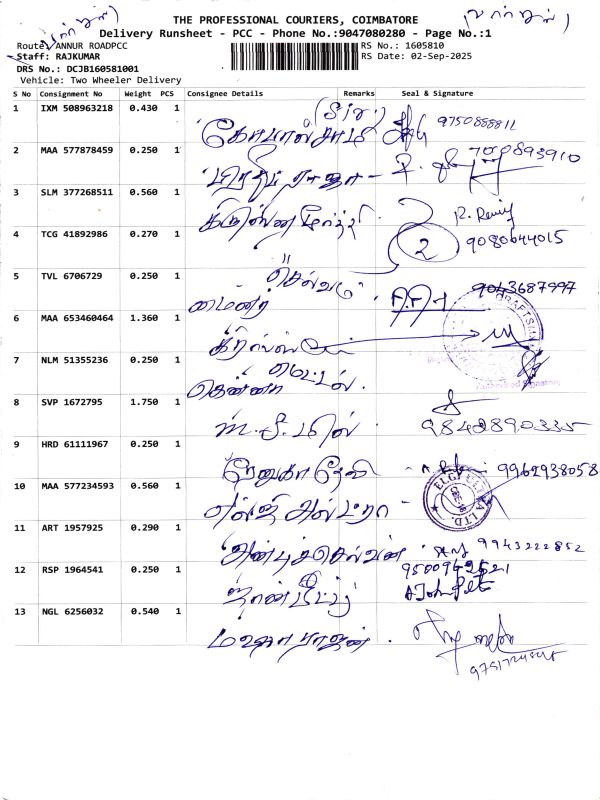 THE PROFESSIONAL COURIERS, COIMBATORE
Delivery Runsheet - PCC - Phone No.:9047080280 - Page No.:1
Route: ANNUR ROADPCC RS No.: 1605810
Staff: RAJKUMAR RS Date: 02-Sep-2025
DRS No.: DCJB160581001
Vehicle: Two Wheeler Delivery
S No Consignment No Weight PCS Consignee Details Remarks Seal & Signature
1 IXM 508963218 0.430 1
(Sir) 9750888811
கோபால்சாமி
2 MAA 577878459 0.250 1
700893910
பிரதீப் ராஜா -
3 SLM 377268511 0.560 1
4 TCG 41892986 0.270 1
2 9080644015
5 TVL 6706729 0.250 1
செல்வம் 9043687997
6 MAA 653460464 1.360 1
7 NLM 51355236 0.250 1
மெட்டல்
Authorised Signatory
8 SVP 1672795 1.750 1
9842890335
9 HRD 61111967 0.250 1
ரேணுகா தேவி 9962938058
10 MAA 577234593 0.560 1
எல்ஜி அல்ட்ரா -
ELGI ULTRA LTD.
11 ART 1957925 0.290 1
அன்புச்செல்வன் 9943222852
12 RSP 1964541 0.250 1
9500942521
ஜான் பீட்டர்
13 NGL 6256032 0.540 1
மஹாராஜன்